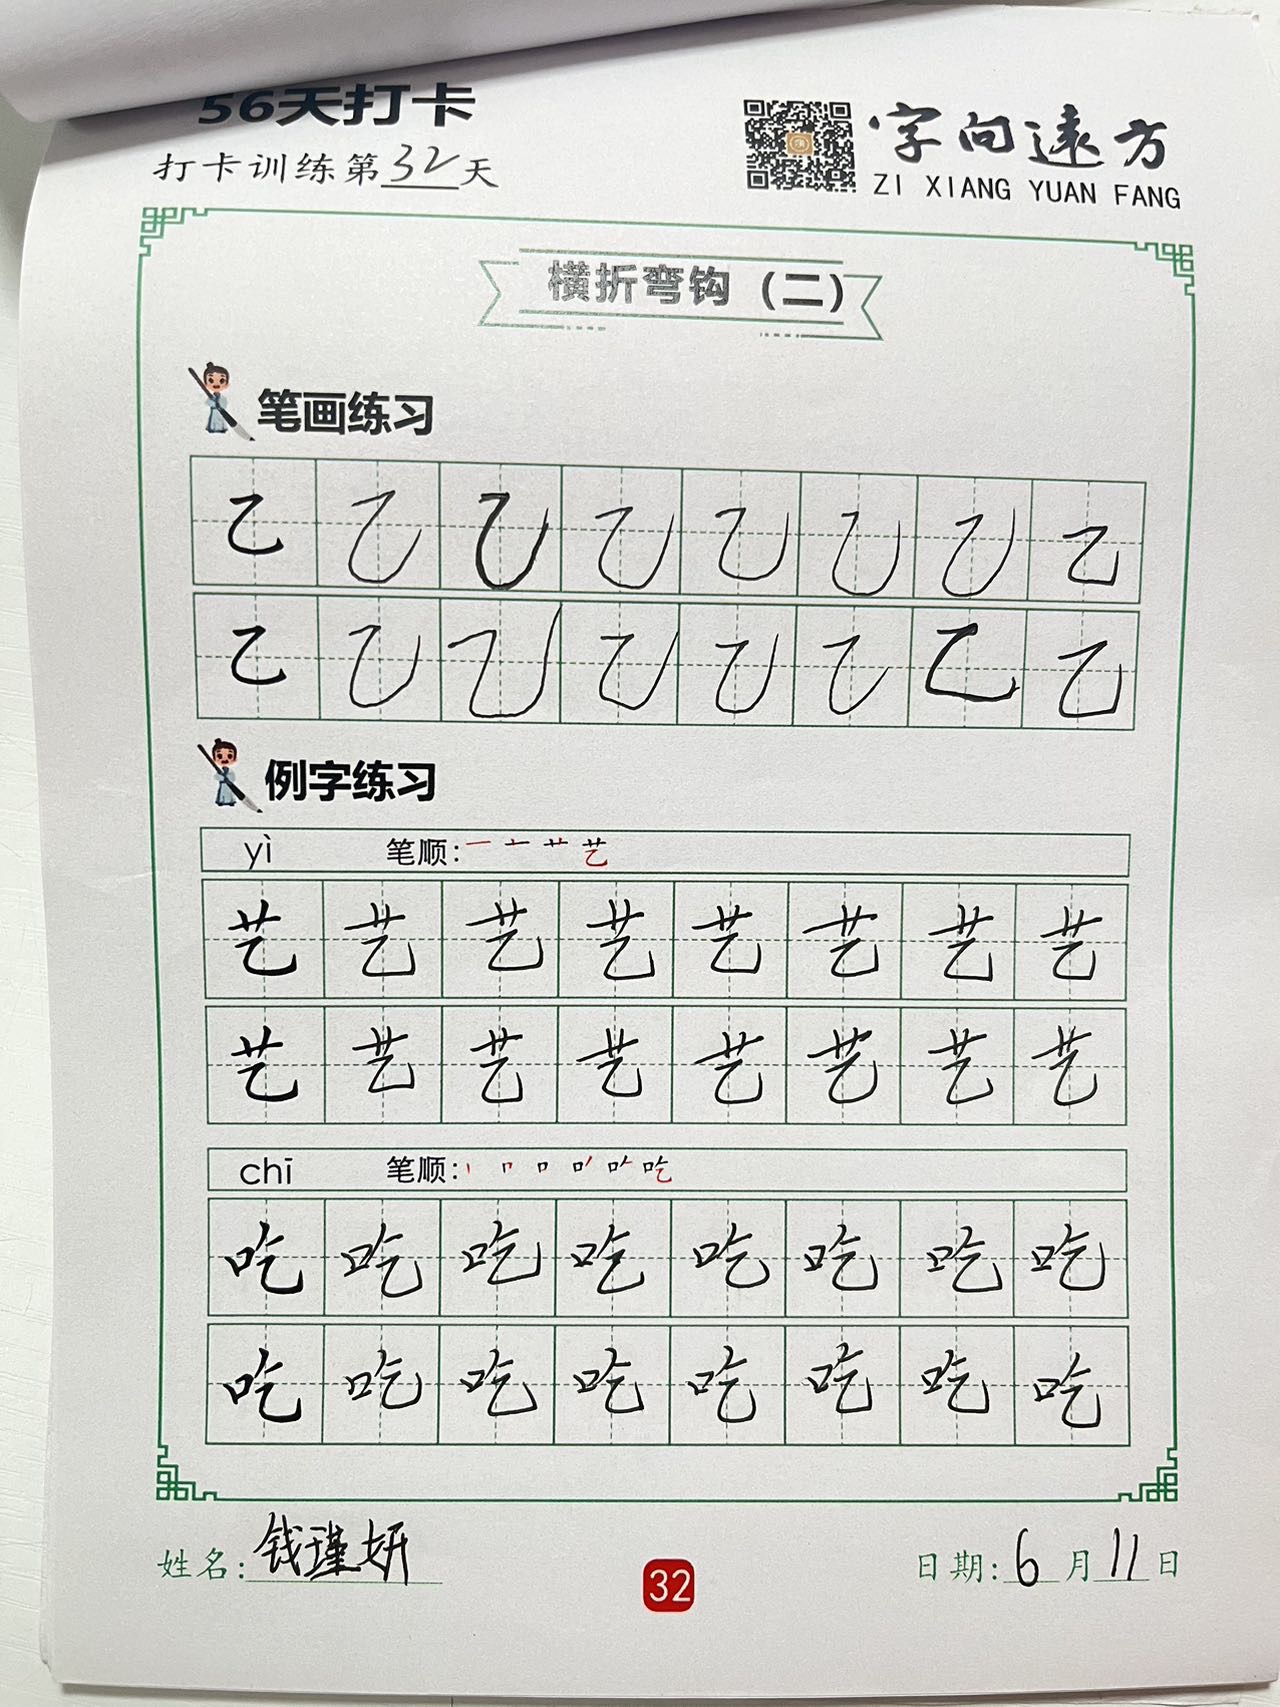 56天打卡
打卡训练第32天
字向远方
ZI XIANG YUAN FANG
横折弯钩（二）
笔画练习
乙乙乙乙乙乙乙乙
乙乙乙乙乙乙乙乙
例字练习
yì 笔顺: 艺
艺艺艺艺艺艺艺艺
艺艺艺艺艺艺艺艺
chī 笔顺: 吃
吃吃吃吃吃吃吃吃
吃吃吃吃吃吃吃吃
姓名:钱瑾妍
32
日期:6月11日